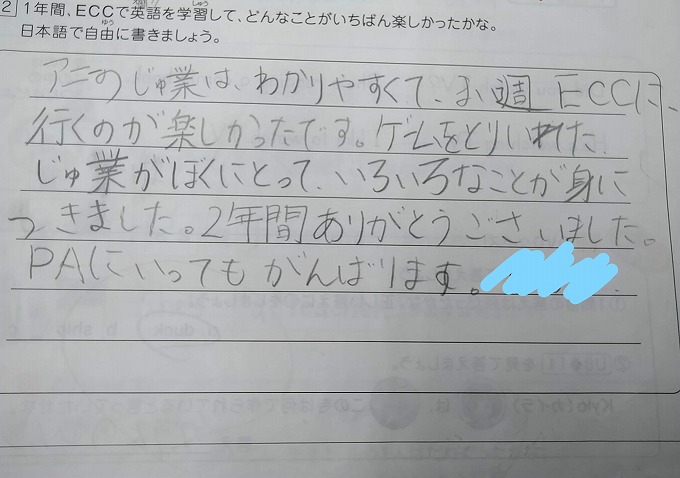 2 1年間、ECCで英語を学習して、どんなことがいちばん楽しかったかな。
日本語で自由に書きましょう。
アニーのじゅ業は、わかりやすくて、まい週ECCに、
行くのが楽しかったです。ゲームをとりいれた
じゅ業がぼくにとって、いろいろなことが身に
つきました。2年間ありがとうございました。
PAにいってもがんばります。